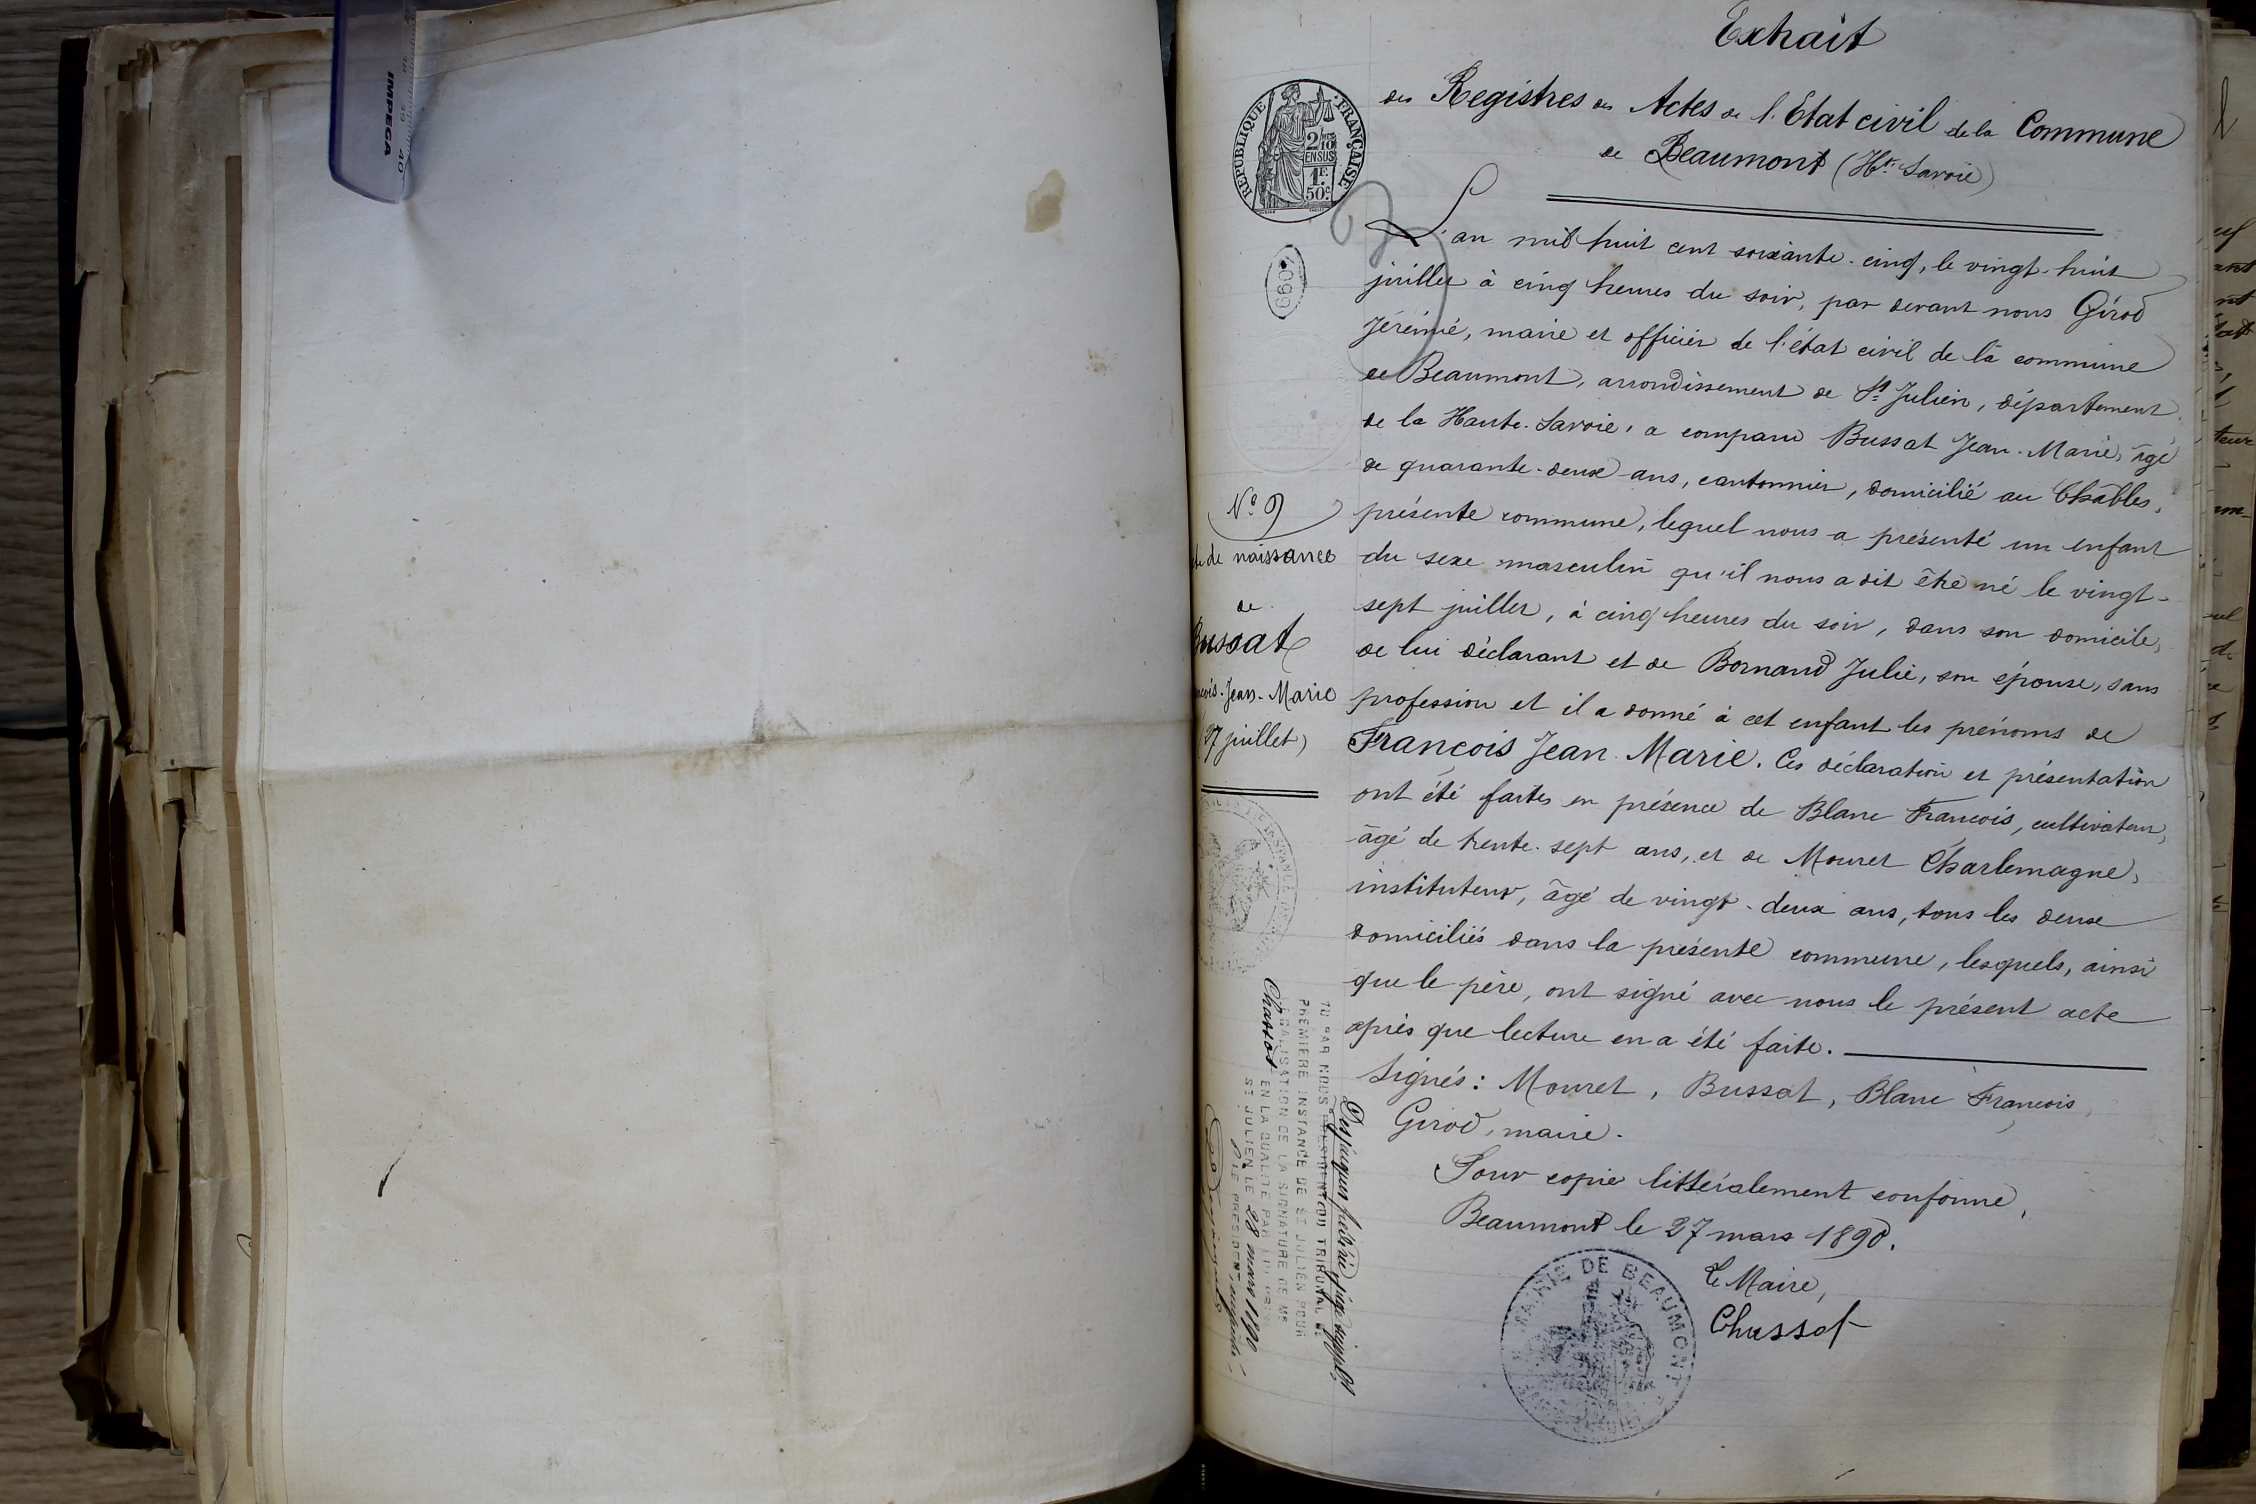 IMPEGA
39 40
Extrait
des Registres des Actes de l'Etat civil de la Commune
de Beaumont (Hte Savoie)
REPUBLIQUE FRANÇAISE
2/10 EN SUS
1F. 50c.
L'an mil huit cent soixante-cinq, le vingt-huit
juillet à cinq heures du soir, par devant nous Girod
Jérémie, maire et officier de l'état civil de la commune
de Beaumont, arrondissement de St Julien, département
de la Haute-Savoie, a comparu Bussat Jean-Marie, âgé
de quarante-deux ans, cantonnier, domicilié au Châbles,
présente commune, lequel nous a présenté un enfant
du sexe masculin qu'il nous a dit être né le vingt-
sept juillet, à cinq heures du soir, dans son domicile,
de lui déclarant et de Bornand Julie, son épouse, sans
profession et il a donné à cet enfant les prénoms de
François Jean-Marie. Ces déclaration et présentation
ont été faites en présence de Blanc François, cultivateur,
âgé de trente-sept ans, et de Mouret Charlemagne,
instituteur, âgé de vingt-deux ans, tous les deux
domiciliés dans la présente commune, lesquels, ainsi
que le père, ont signé avec nous le présent acte
après que lecture en a été faite.
Signés: Mouret, Bussat, Blanc François,
Girod, maire.
Pour copie littéralement conforme,
Beaumont le 27 mars 1890.
Le Maire,
Chassot
MAIRIE DE BEAUMONT
No 9
de naissance
de
Bussat
Jean-Marie
(27 juillet)
PAR NOUS
TRIBUNAL DE
PREMIERE INSTANCE DE ST JULIEN POUR
LEGALISATION DE LA SIGNATURE DE MR
Chassot
EN LA QUALITE PAR LUI PRISE
ST JULIEN LE 28 mars 1890
P LE PRESIDENT empêché
Desjacques